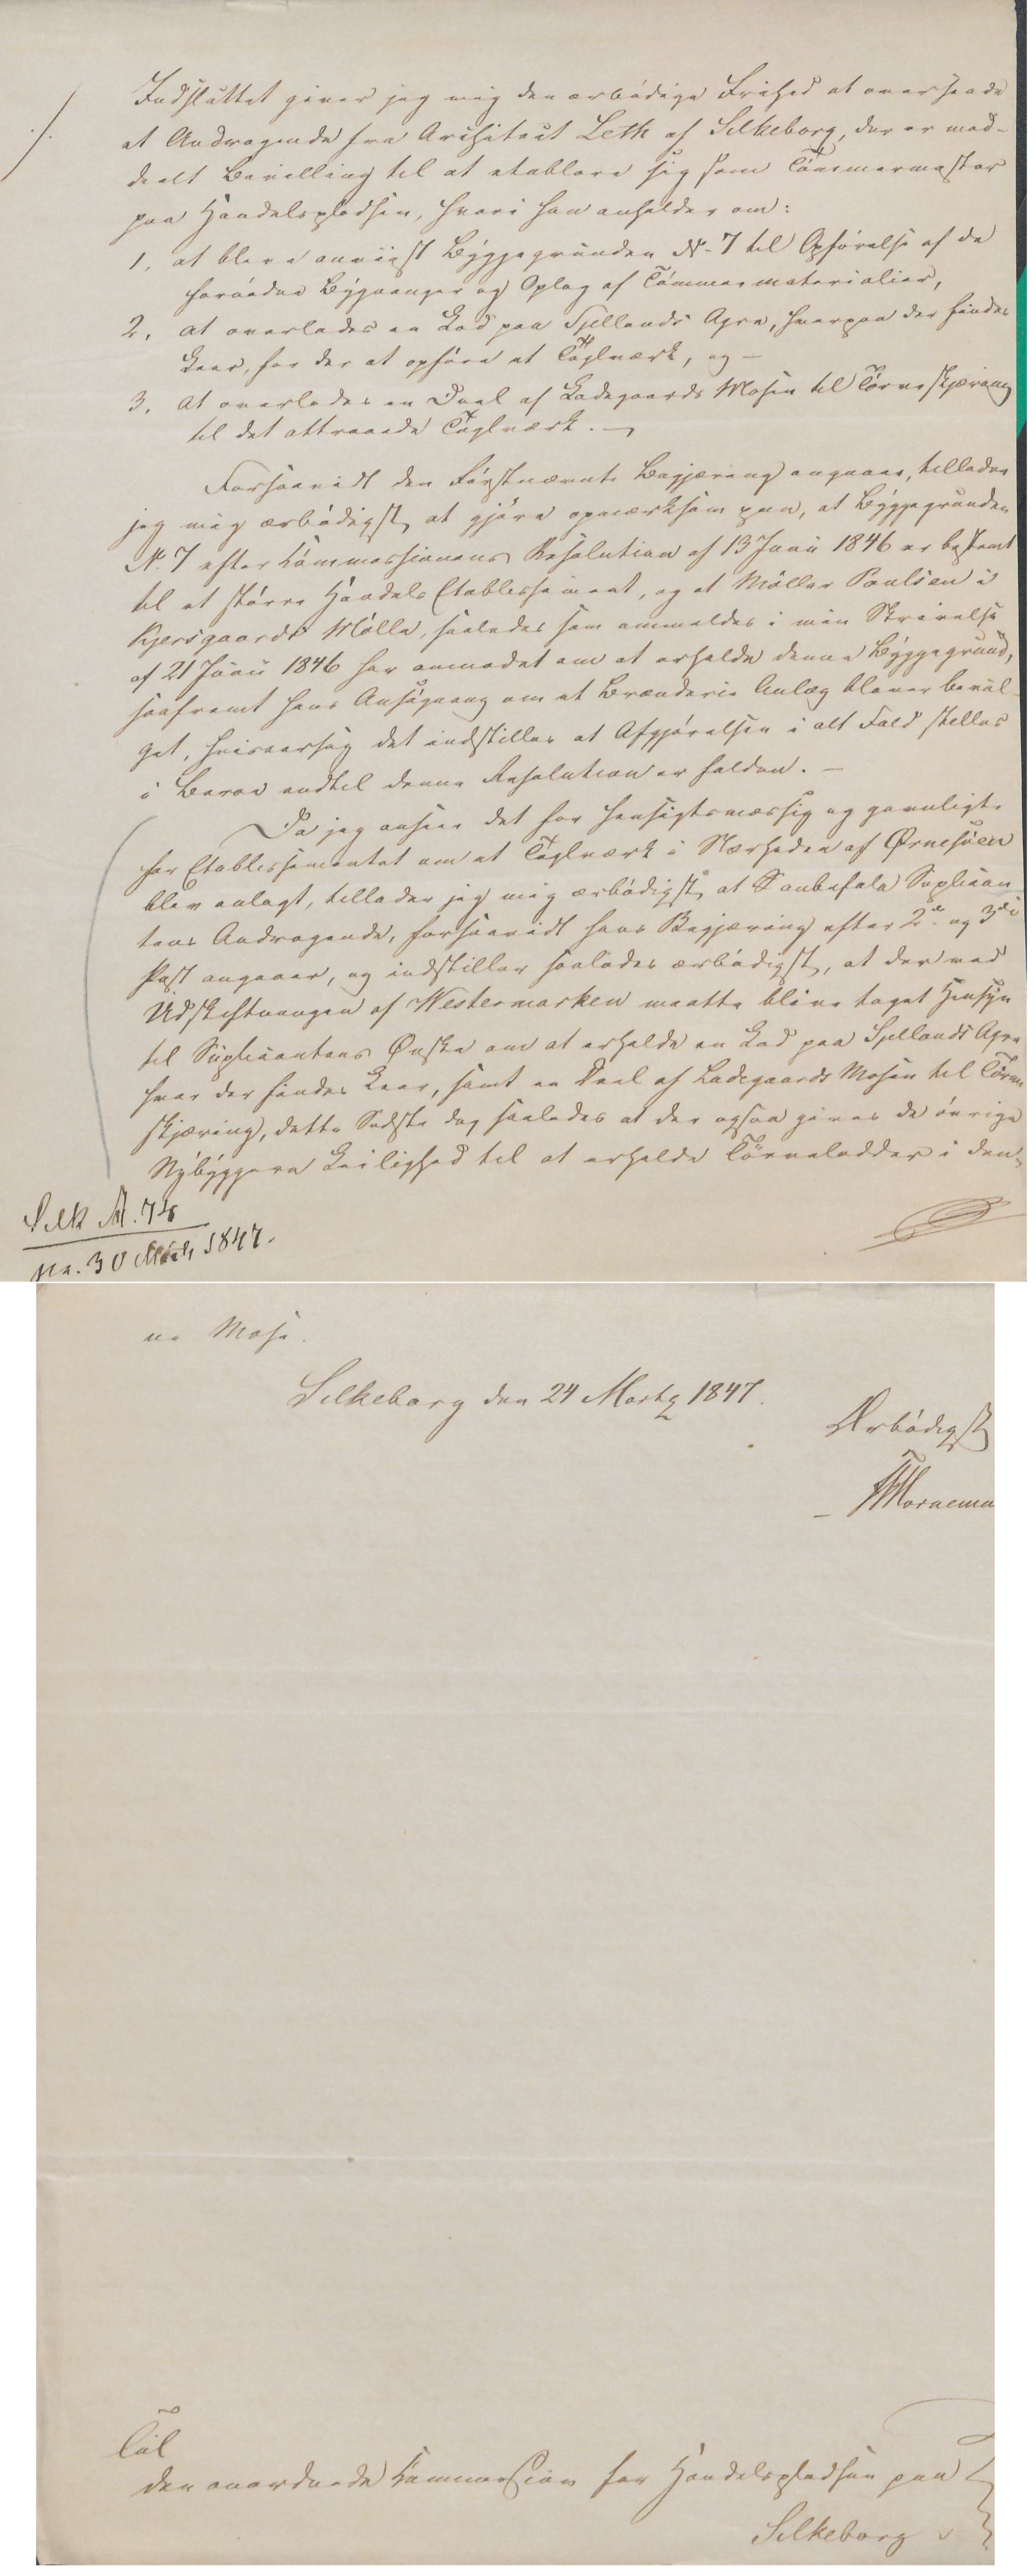 ./.
Indsluttet giver jeg mig den ærbödige Frihed at oversende
et Andragende fra Architect Leth af Silkeborg, der er med-
deelt Bevilling til at etablere sig som Tömmermester
paa Handelspladsen, hvori han anholder om:
1, at blive anviist Byggegrunden № 7 til Opförelse af de
fornödne Bygninger og Oplag af Tömmermaterialier,
2, at overlades en Lod paa Sjellands Agre, hvorpaa der findes
Leer, for der at opföre et Teglværk, og —
3, at overlades en Deel af Ladegaards Mosen til Törveskjæring
til det attraaede Teglværk. —
Forsaavidt den Förstnævnte Begjæring angaaer, tillader
jeg mig ærbödigst at gjöre opmærksom paa, at Byggegrunden
№ 7 efter Commissionens Resolution af 13 Juni 1846 er bestemt
til et större Handels Etablissement, og at Möller Poulsen i
Kjersgaards Mölle, saaledes som ommeldes i min Skrivelse
af 21 Juni 1846 har anmodet om at erholde denne Byggegrund,
saafremt hans Ansögning om et Brænderie Anlæg bliver bevil-
get, hvisaarsag det indstilles at Afgjörelsen i alt Fald stilles
i Beroe indtil denne Resolution er falden. —
Da jeg anseer det for hensigtsmæssig og gavnligt
for Etablissementet om et Teglværk i Nærheden af Ørnesöen
blev anlagt, tillader jeg mig ærbödigst at anbefale Suplican-
tens Andragende, forsaavidt hans Begjæring efter 2de og 3die
Post angaaer, og indstiller saaledes ærbödigst, at der ved
Udskiftningen af Westermarken maatte blive taget Hensyn
til Suplicantens Ønske om at erholde en Lod paa Sjellands Agre
hvor der findes Leer, samt en Deel af Ladegaards Mosen til Törve
skjæring, dette Sidste dog saaledes at der ogsaa gives de övrige
Nybyggere Leilighed til at erholde Törvelodder i den-
Silk № 74
30 1847.
ne Mose.
Silkeborg den 24 Marts 1847.
Ærbödigst
Til
den anordnede Commission for Handelspladsen paa
Silkeborg